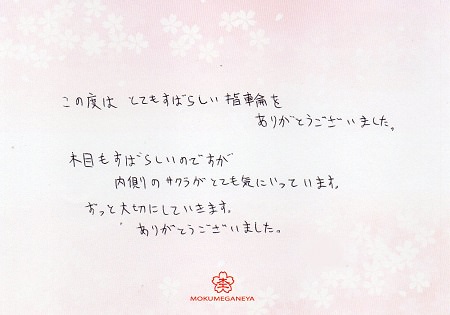 この度は とてもすばらしい 指輪を
ありがとうございました。
木目もすばらしいのですが
内側のサクラがとても気にいっています。
ずっと大切にしていきます。
ありがとうございました。
MOKUMEGANEYA